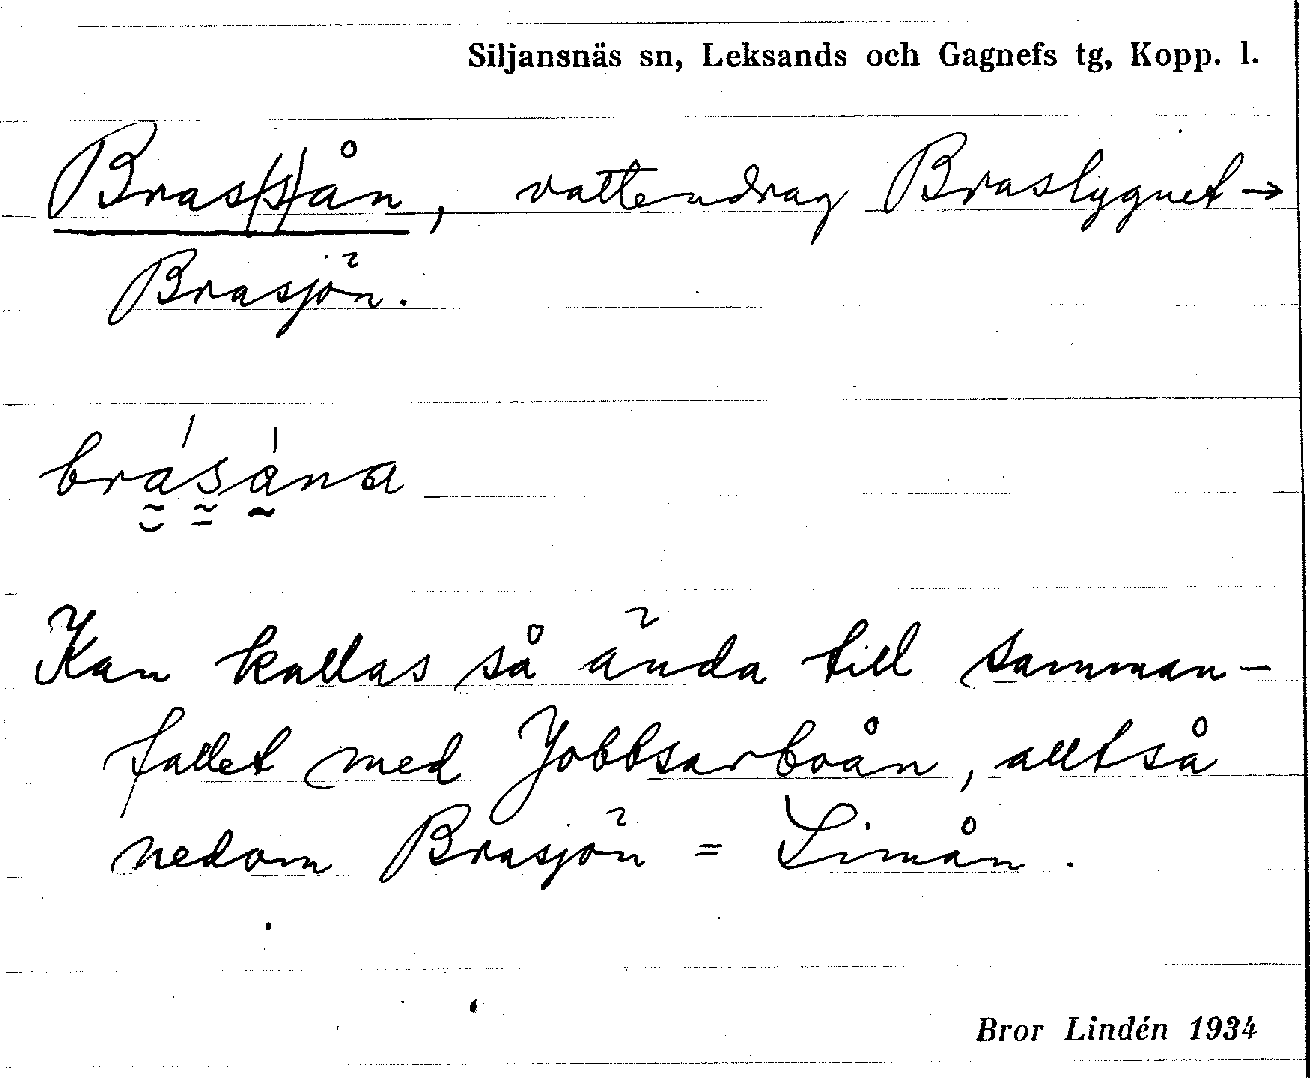 Siljansnäs sn, Leksands och Gagnefs tg, Kopp. l.
Bras(s)ån, vattendrag Braslygnet →
Brasjön.
brásåna
Kan kallas så ända till samman-
fallet med Jobbsarboån, alltså
nedom Brasjön = Limån.
Bror Lindén 1934